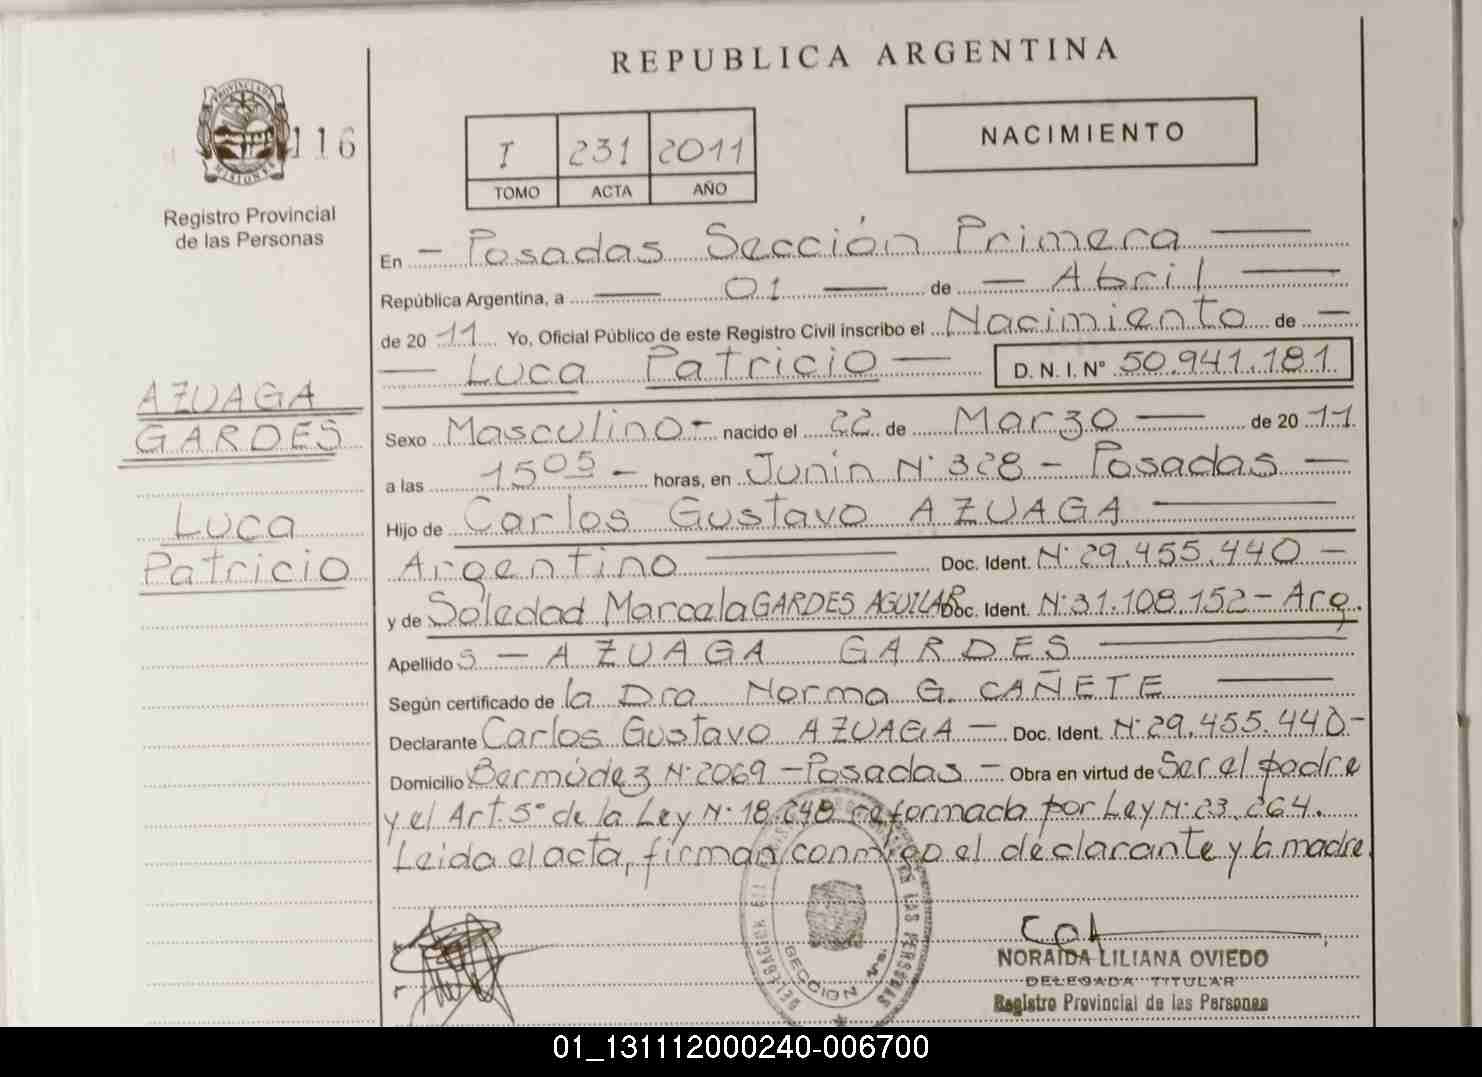 REPUBLICA ARGENTINA
116
Registro Provincial
de las Personas
I 231 2011
TOMO ACTA AÑO
NACIMIENTO
En - Posadas Sección Primera
República Argentina, a 01 de Abril
de 2011 Yo, Oficial Público de este Registro Civil inscribo el Nacimiento de
Luca Patricio D. N. I. Nº 50.941.181
AZUAGA
GARDES
Luca
Patricio
Sexo Masculino - nacido el 22 de Marzo de 2011
a las 15 05 - horas, en Junin N° 328 - Posadas -
Hijo de Carlos Gustavo AZUAGA
Argentino Doc. Ident. N° 29.455.440 -
y de Soledad Marcela GARDES AGUILAR Doc. Ident. N° 31.108.152 - Arg.
Apellido s - AZUAGA GARDES
Según certificado de la Dra Norma G. CAÑETE
Declarante Carlos Gustavo AZUAGA - Doc. Ident. N° 29.455.440 -
Domicilio Bermúdez N° 2069 - Posadas - Obra en virtud de Ser el padre
y el Art. 5° de la Ley N° 18.248 reformada por Ley N° 23.264.
Leida el acta, firman conmigo el declarante y la madre.
NORAIDA LILIANA OVIEDO
DELEGADA TITULAR
Registro Provincial de las Personas
01_131112000240-006700